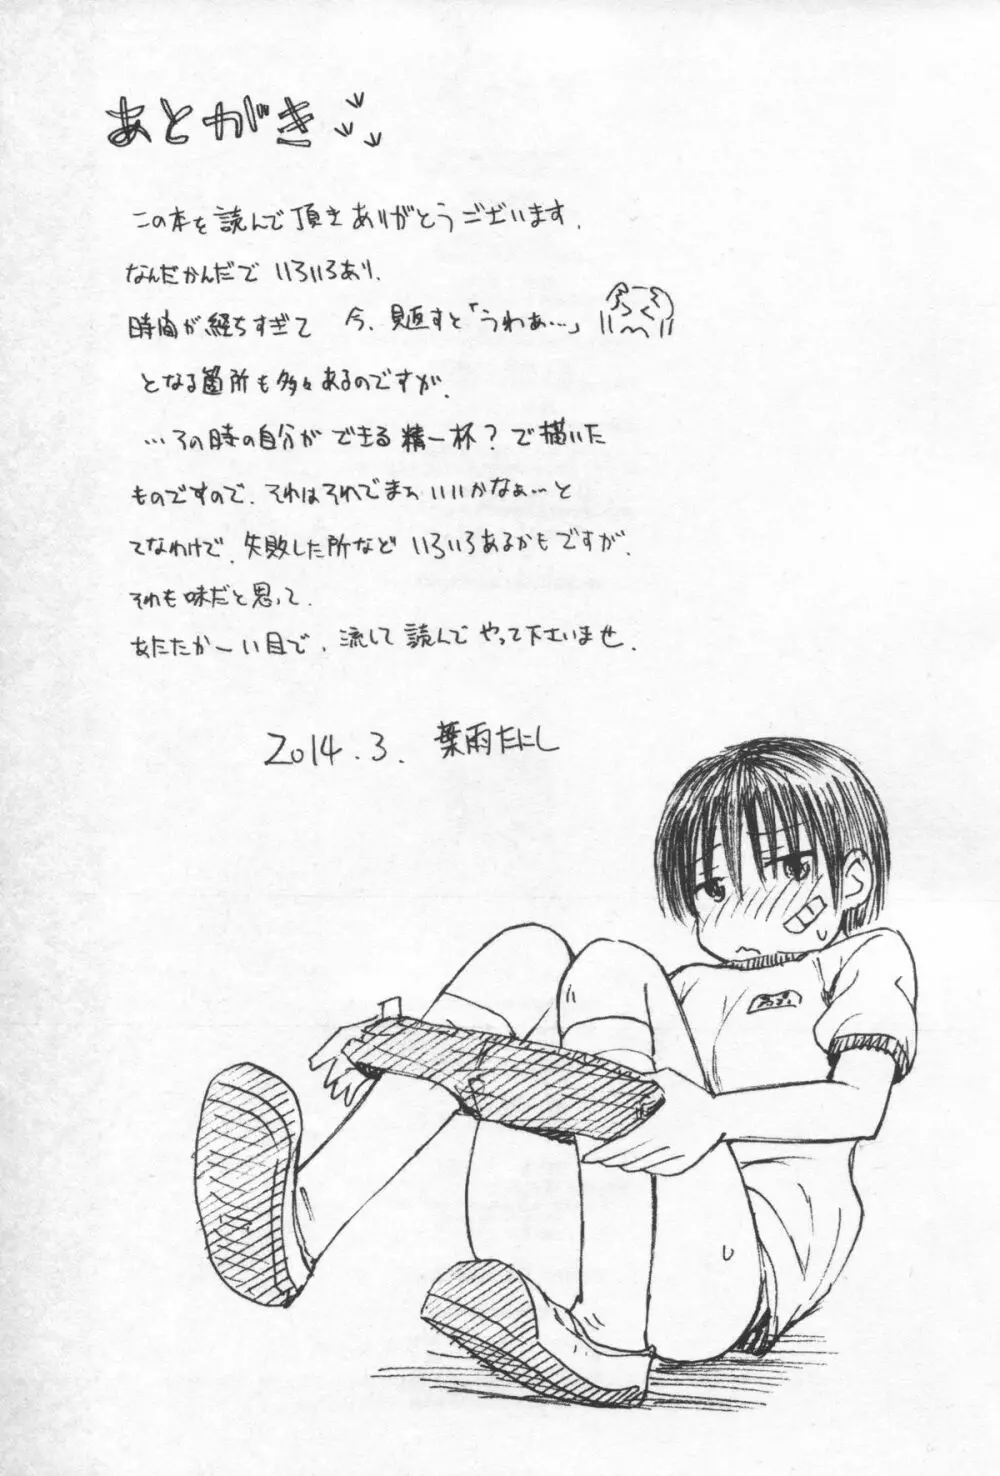 あとがき
この本を読んで頂きありがとうございます.
なんだかんだで いろいろあり.
時間が経ちすぎて 今、見返すと「うわぁ…」
となる箇所も多々あるのですが.
…その時の自分ができる精一杯？で描いた
ものですので、それはそれでまぁいいかなぁ…と
てなわけで、失敗した所など いろいろあるかもですが.
それも味だと思って.
あたたかーい目で、流して読んでやって下さいませ.
2014.3. 葉雨たにし